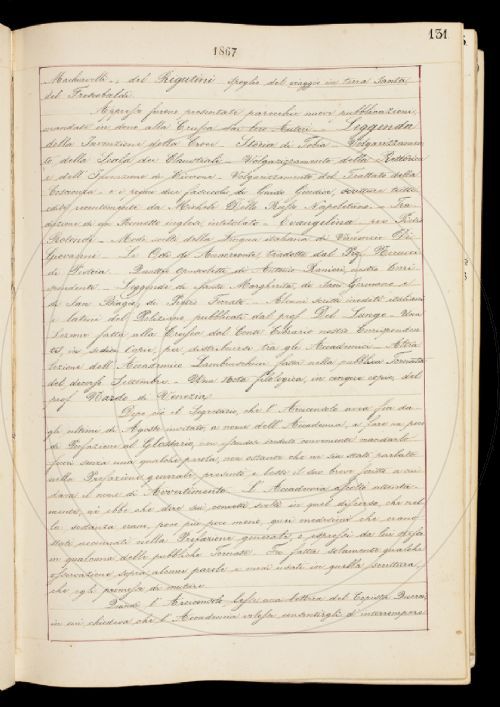 131
1867
Machiavelli -, del Rigutini spoglio del viaggio in terra Santa
del Frescobaldi.
Appresso furono presentate parecchie nuove pubblicazioni
mandate in dono alla Crusca dai loro Autori. - Leggenda
della Invenzione della Croce - Storia di Tobia - Volgarizzamen
to della Scala dei Claustrali - Volgarizzamento della Rettorica
e dell' Inenzione di Cicerone - Volgarizzamento del Trattato della
Coscienza - e i primi due fascicoli di Guido Giudice, scritture tutte
edite recentemente da Michele Delle Russo Napolitano - Tra
duzione di un Poemetto inglese intitolato - Evangelina - per Pietro
Rotondi - Modi scelti della lingua italiana di Vincenzo Di
Giovanni - Le Odi di Anacreonte, tradotte dal Prof.
di Pistoia - Quattro operette di Antonio Ranieri, nostro Corri
spondente - Leggende di Santa Margherita, di San Giovanni e
di San Biagio, di Pietro Ferrato - Alcuni scritti inediti italiani
e latini del Poliziano, pubblicati dal prof. Del Lungo - Una
Lezione fatta alla Crusca dal Conte Cibrario nostro Corrisponden
te, in sedici copie, per distribuirsi tra gli Accademici - Altra
Lezione dell' Accademico Lambruschini fatta nella pubblica Tornata
del decorso Settembre - Una Nota filologica, in cinque copie, del
prof. Nardo di Venezia.
Dopo ciò il Segretario, che l' Arciconsolo avea fin da-
gli ultimi di Agosto invitato, a nome dell' Accademia, a fare un poco
di Prefazione al Glossario, non essendo creduto conveniente mandarlo
fuori senza una qualche parola, non ostante che ne sia stato parlato
nella Prefazione generale, presentò e lesse il suo breve scritto a cui
dava il nome di Avvertimento. L' Accademia ascoltò attenta-
mente, nè ebbe che dire sui concetti svolti in quel discorso, che nel-
la sostanza erano, poco più poco meno, quei medesimi che erano
stati accennati nella Prefazione generale, e espressi da lui stesso
in qualcuna delle pubbliche Tornate. Fu fatta solamente qualche
osservazione sopra alcune parole e modi usati in quella scrittura,
che egli promesse di mutare.
Quindi l' Arciconsolo lesse una lettera del Copista
in cui chiedeva che l' Accademia volesse consentirgli d' interrompere